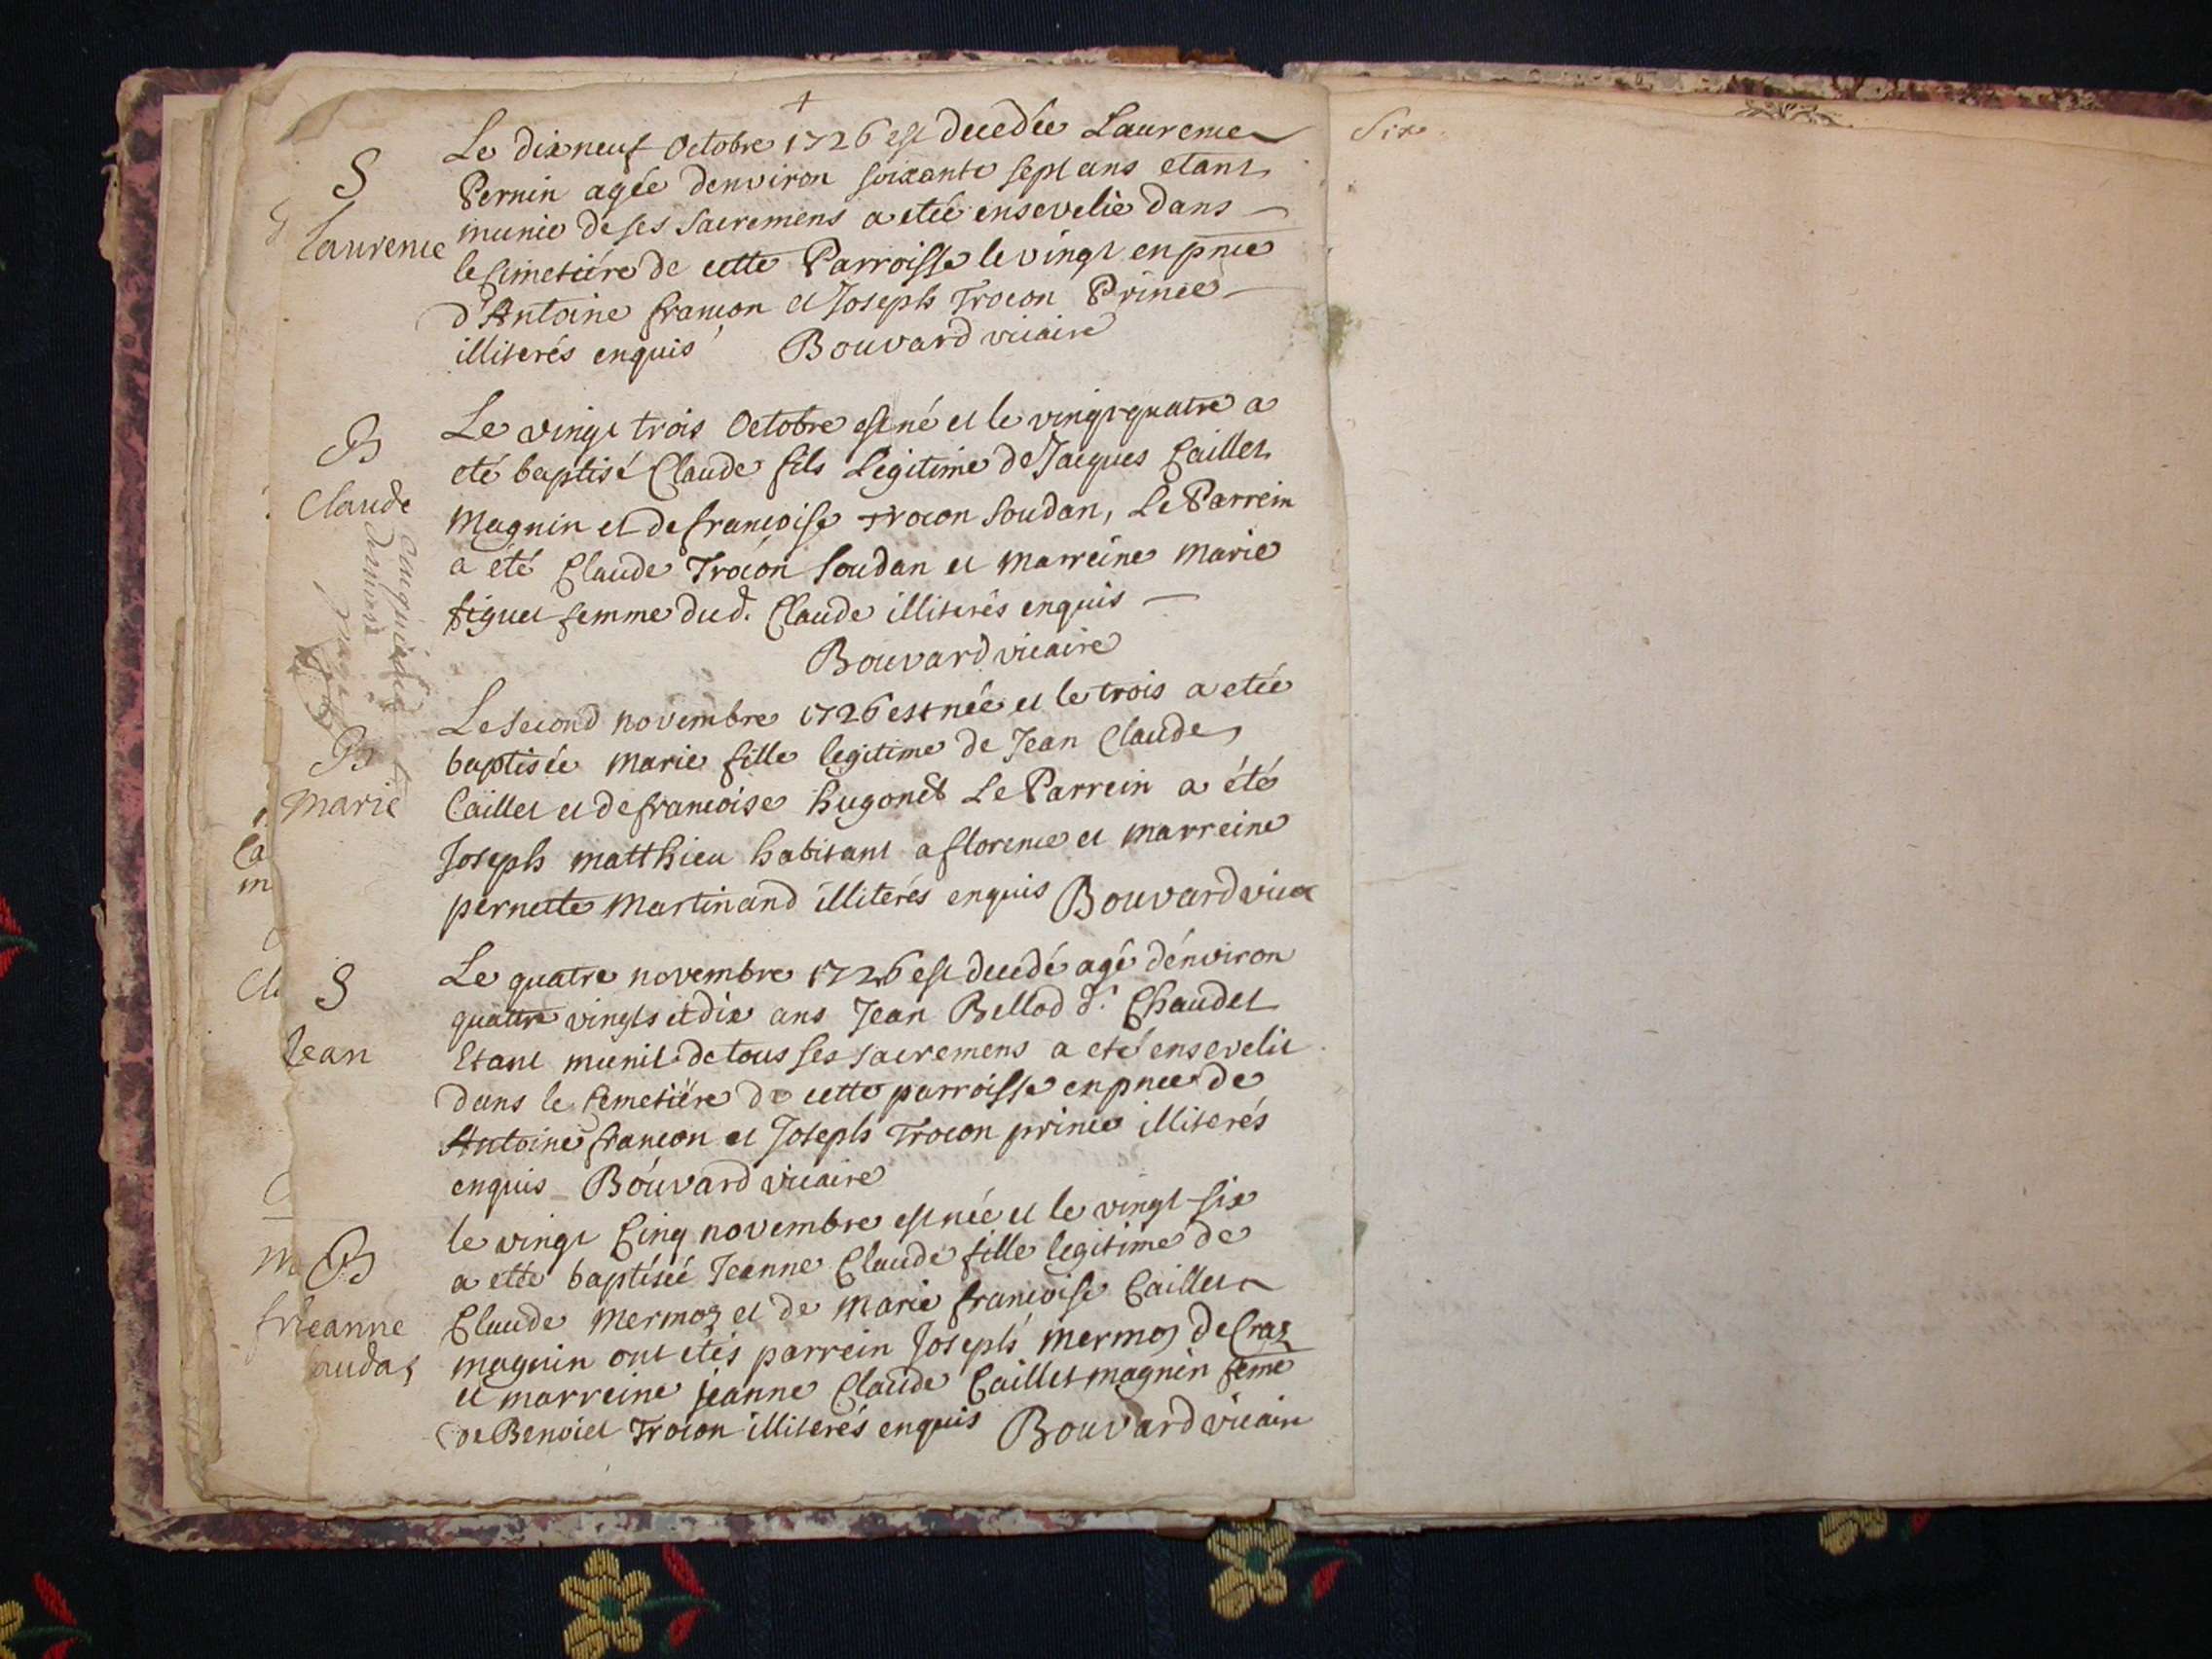 Le dixneuf Octobre 1726 est decedée Laurence
Pernin agée denviron soixante sept ans etant
S
munie de ses sacremens a etée ensevelie dans
Laurence
le cimetiére de cette Parroisse le vingt en pnce
d'Antoine françon et Joseph Trocon Prince
illiterés enquis Bouvard vicaire
Le vingt trois Octobre est né et le vingt quatre a
B
eté baptisé Claude fils Legitime de Jacques Caillet
Claude
Magnin et de françoise Trocon Soudan, Le Parrein
a été Claude Trocon Soudan et marreine Marie
figuet femme dud. Claude illiterés enquis
Bouvard vicaire
Le second novembre 1726 est née et le trois a etée
B
baptisée marie fille legitime de Jean Claude
Marie
Caillet et de françoise hugonet Le Parrein a été
Joseph matthieu habitant a florence et marreine
pernette Martinand illiterés enquis Bouvard vicae
Le quatre novembre 1726 est decedé agé dénviron
S
quattre vingts et dix ans Jean Bellod d. Chaudet
Jean
Etant munit de tous ses sacremens a eté ensevelit
dans le cemetiére de cette parroisse en pnce de
Antoine françon et Joseph Trocon prince illiterés
enquis Bouvard vicaire
le vingt Cinq novembre est née et le vingt six
B
a etté baptiséé Jeanne Claude fille legitime de
Jeanne
Claude Mermoz et de Marie françoise Caillet
magnin ont etés parrein Joseph Mermoz de Craz
et marreine jeanne Claude Caillet magnin feme
de Benoiet Trocon illiterés enquis Bouvard vicaire
Six